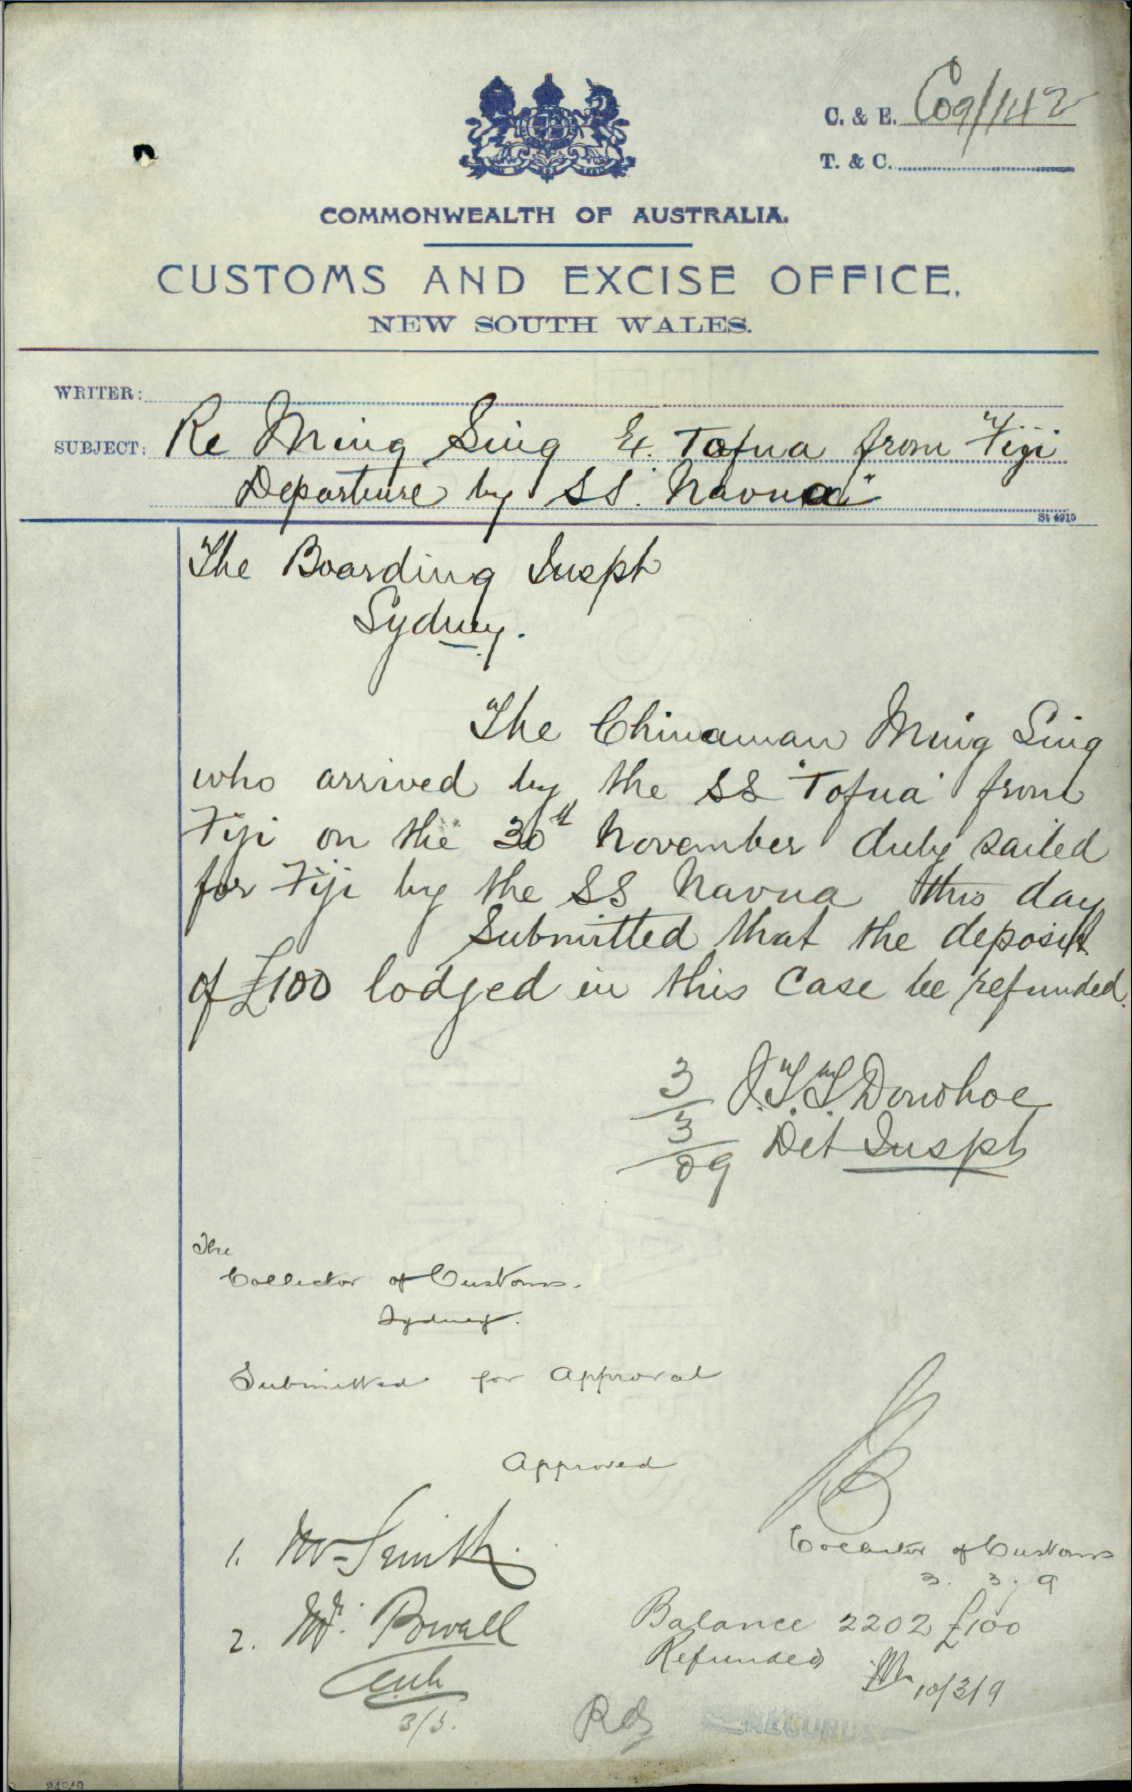 C. & E. C09/142
T. & C.
COMMONWEALTH OF AUSTRALIA.
CUSTOMS AND EXCISE OFFICE,
NEW SOUTH WALES.
WRITER:
SUBJECT: Re Ming Sing Ex. Tofua from Fiji
Departure by SS. "Navua"
St 4915
The Boarding Inspt
Sydney.
The Chinaman Ming Sing
who arrived by the SS "Tofua" from
Fiji on the 30th November duly sailed
for Fiji by the SS Navua this day
Submitted that the deposit
of £100 lodged in this case be refunded.
3/3/09 J.T.T. Donohoe
Det Inspt
The
Collector of Customs.
Sydney.
Submitted for Approval
Approved
Collector of Customs
3. 3. 9
1. Mr Smith.
2. Mr. Powell
3/3.
Balance 2202 £100
Refunded
10/3/9
RECORDS